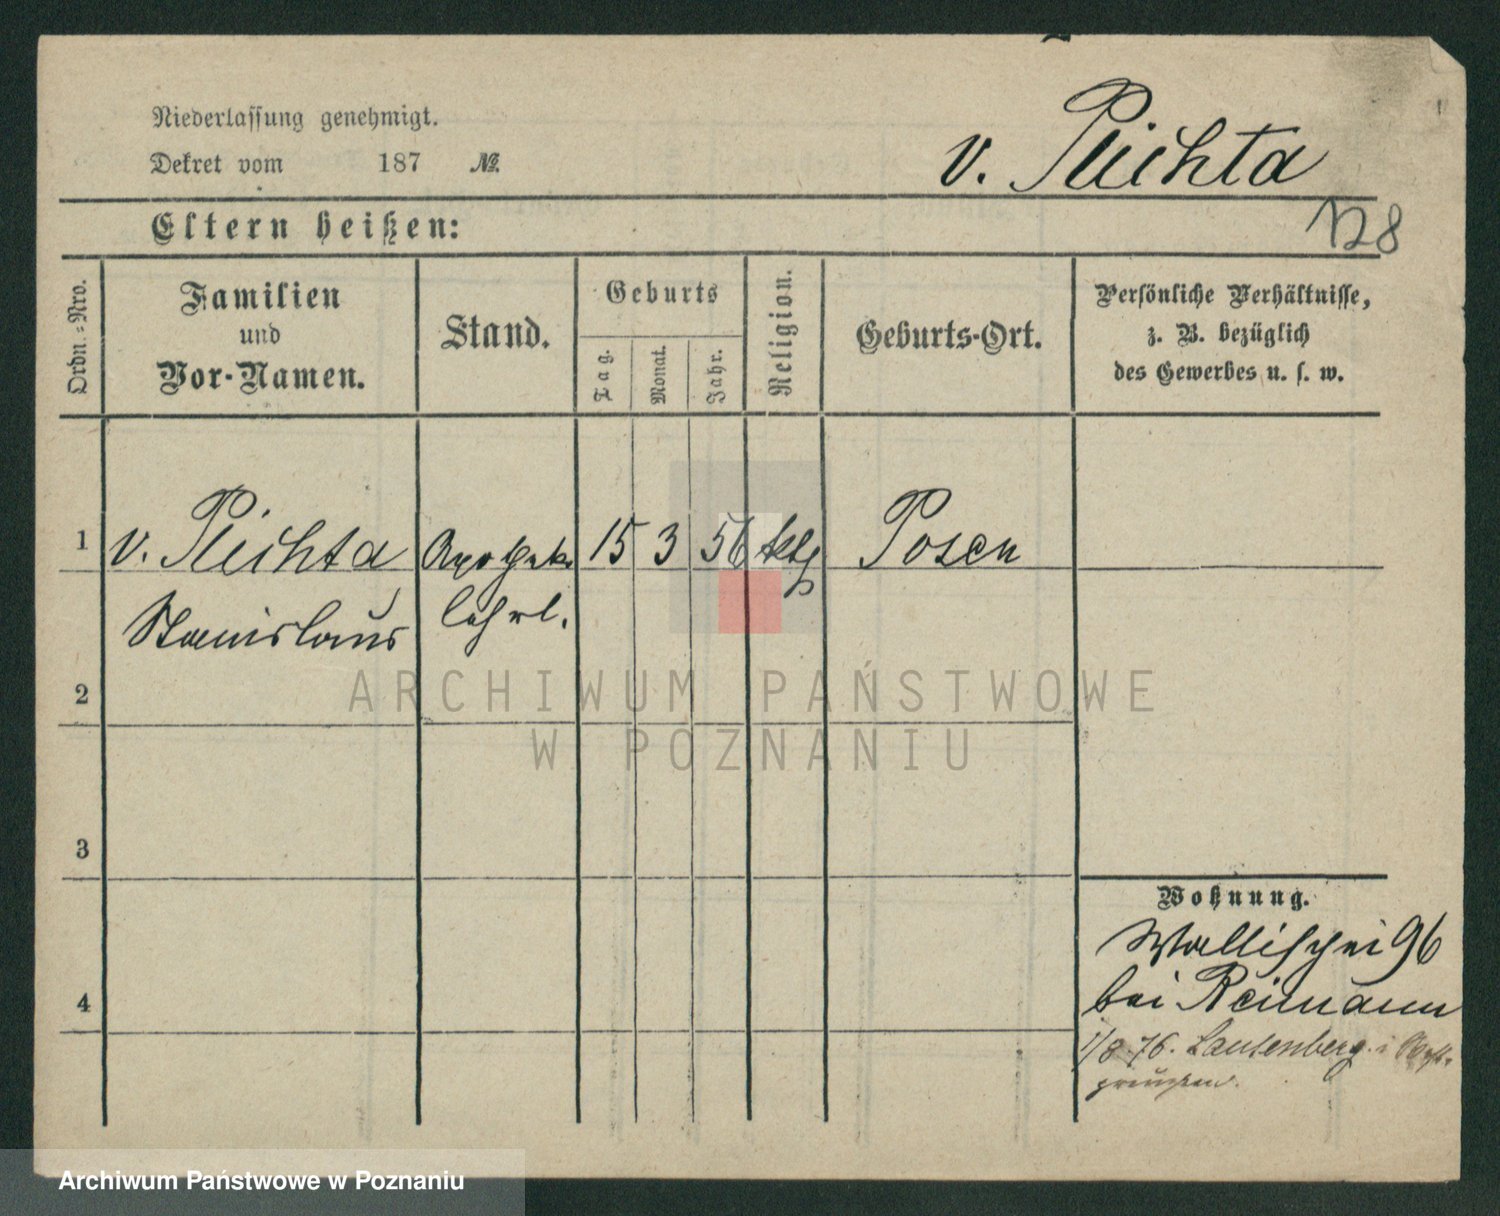 Niederlassung genehmigt.
Dekret vom 187 №.
v. Plichta
128
Eltern heißen:
Ordn.-Nro.
Familien
und
Vor-Namen.
Stand.
Geburts
Tag.
Monat.
Jahr.
Religion.
Geburts-Ort.
Persönliche Verhältnisse,
z. B. bezüglich
des Gewerbes u. s. w.
1 v. Plichta Apothek. 15 3 56 kth Posen
Stanislaus lehrl.
2
3
4
Wohnung.
Wallischei 96
bei Reimann
1/8.76. Lautenberg i West-
preußen.
ARCHIWUM PAŃSTWOWE
W POZNANIU
Archiwum Państwowe w Poznaniu